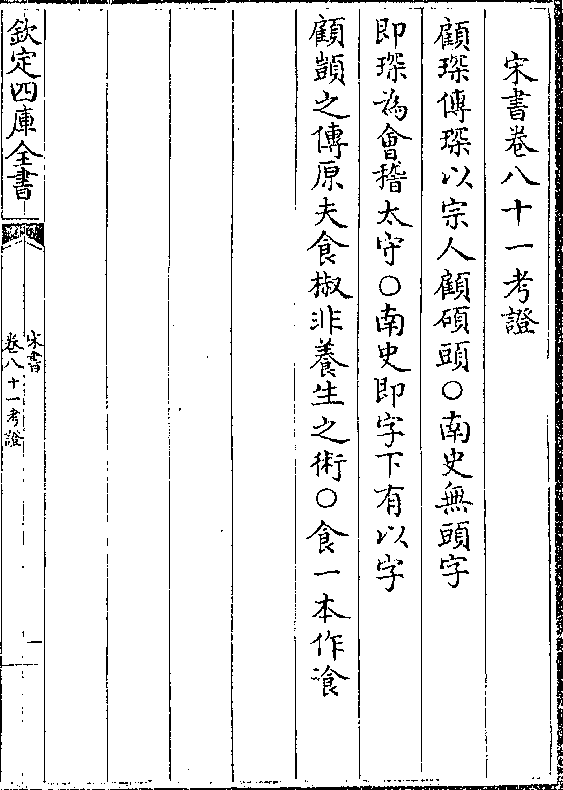 宋書卷八十一考證
顧琛傳琛以宗人顧碩頭○南史無頭字
即琛為會稽太守○南史即字下有以字
顧顗之傳原夫食椒非養生之術○食一本作飡
欽定四庫全書
宋書
卷八十一考證
一